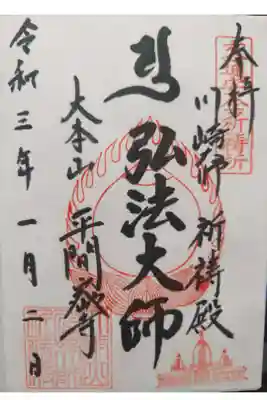 奉拝
川崎 祈祷殿
弘法大師
大本山 平間寺
令和三年一月二日